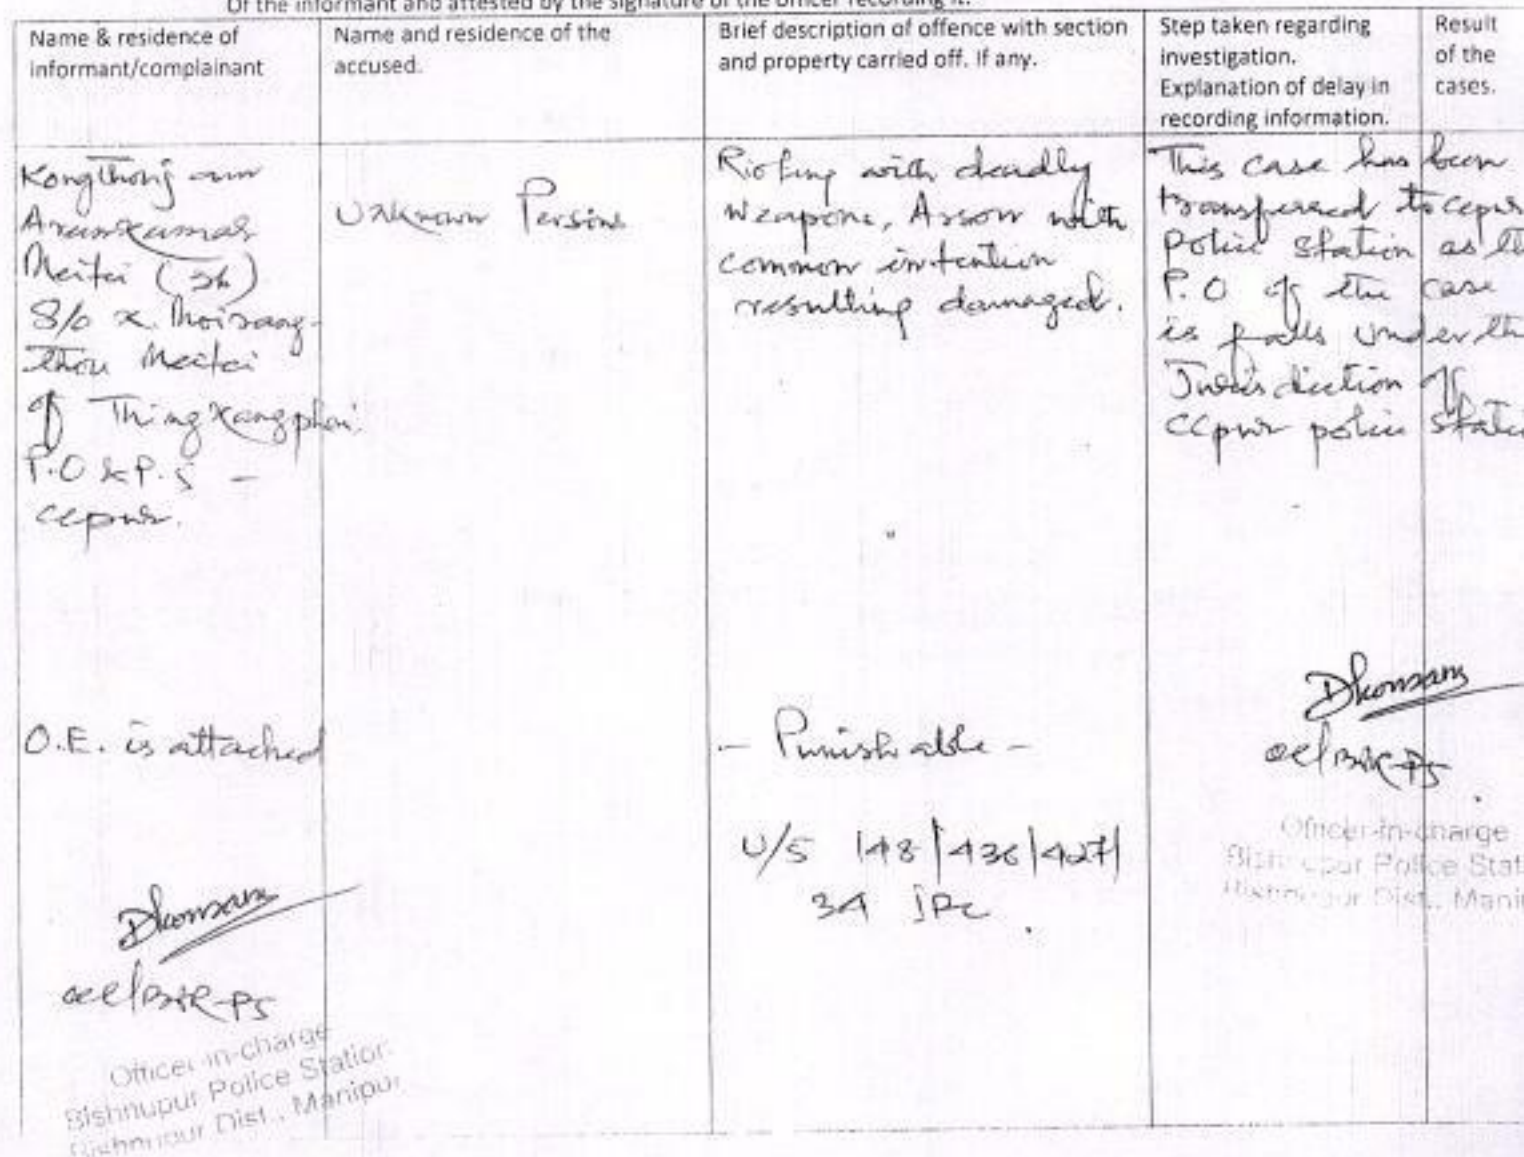 Of the informant and attested by the signature of the officer recording it.
Name & residence of
informant/complainant
Name and residence of the
accused.
Brief description of offence with section
and property carried off. If any.
Step taken regarding
investigation.
Explanation of delay in
recording information.
Result
of the
cases.
Kongthong
Arunkumar
Meitei
S/o K. Moirang-
thou Meitei
of Thingkangphai.
P.O & P.S -
ccpur.
O.E. is attached
OC/BPR-PS
Officer-in-charge
Bishnupur Police Station
Bishnupur Dist., Manipur
Unknown Persons
Rioting with deadly
weapons, Arson with
common intention
resulting damaged.
- Punishable -
U/S 148/436/427/
34 IPC.
This case has been
transferred to ccpur
Police Station as the
P.O of the case
is falls under the
Jurisdiction of
ccpur police Statio
OC/BPR-PS
Officer-in-charge
Bishnupur Police Stat
Bishnupur Dist., Mani